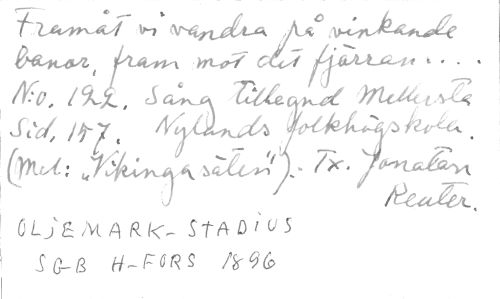 Framåt vi vandra på vinkande
banor, fram mot det fjärran....
N:o. 122. Sång tillegnd Mellersta
Sid. 157. Nylands folkhögskola.
(Mel: „Vikingasäten"). Tx. Jonatan
Reuter.
OLJEMARK-STADIUS
SGB H-FORS 1896